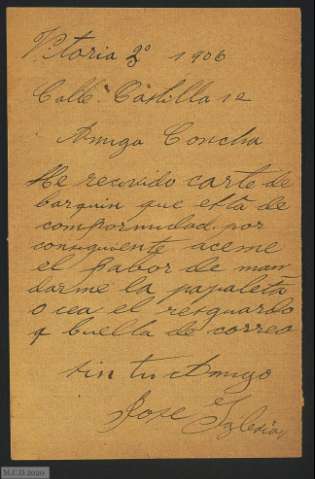 Vitoria 2º 1906
Calle Castilla 12
Amiga Concha
He recivido carte de
barquin que esta de
comformidad. por
consiguiente aceme
el fabor de man
darme la papaleta
o cea el resguardo
q buella de correo
sin tu Amigo
Jose Iglesias
M.C.D 2020